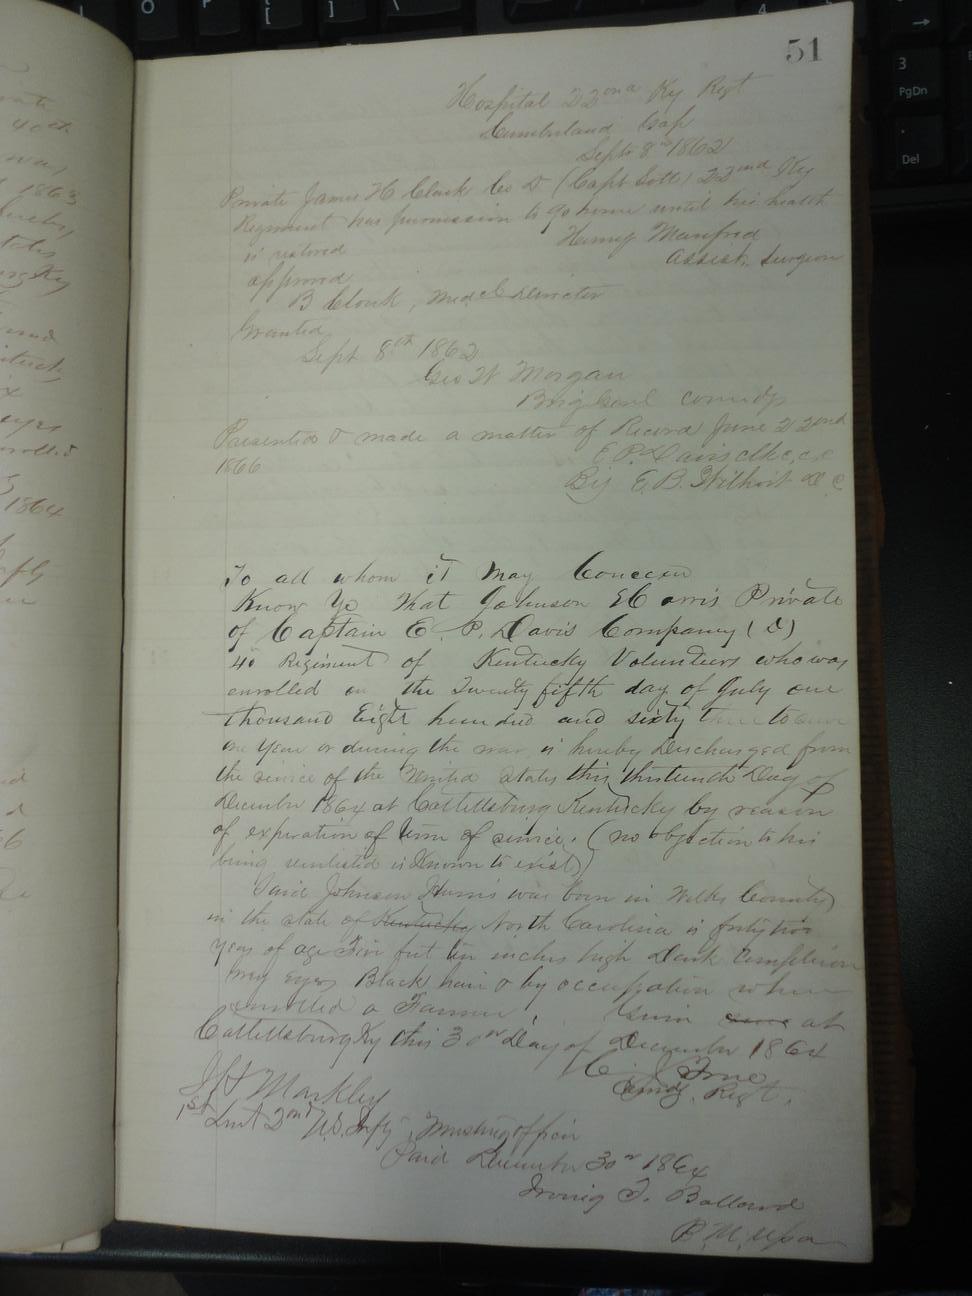 51
Hospital 22ond Ky Regt
Cumberland Gap
Sept 8th 1862
Private James H Clark Co D (Capt Scott) 22nd Ky
Regiment has permission to go home until his health
is restored
Henry Manfred
Assist. Surgeon
approved
B Clark, Medcl Director
Granted
Sept 8th 1862
Geo W Morgan
Brig Genl comdg
Presented & made a matter of Record June 22nd
1866
E. P. Davis clk c.c
By E. B. Wilhoit D. C
To all whom it May Concern
Know Ye That Johnson Harris Private
of Captain E. P. Davis Company (D)
40 Regiment of Kentucky Volunteers who was
enrolled on the Twenty fifth day of July one
thousand Eight hundred and sixty three to serve
one year or during the war is hereby Discharged from
the service of the United States this thirteenth Day of
December 1864 at Catlettsburg Kentucky by reason
of expiration of term of service. (no objection to his
being reenlisted is Known to exist)
Said Johnson Harris was born in Wilks County
in the state of Kentucky North Carolina is forty two
years of age Five feet ten inches high Dark Complexion
eyes Black hair & by occupation when
enrolled a Farmer, Given at
Catlettsburg Ky this 30th Day of December 1864
Comdg. Regt.
Markley
1st Leut 2nd U.S. Infty. Musting officer
Paid December 30th 1864
Irving T. Bollard
P. M. USA
3
PgDn
Del
O
P
[
4
1864
1863
40th
was
eyes